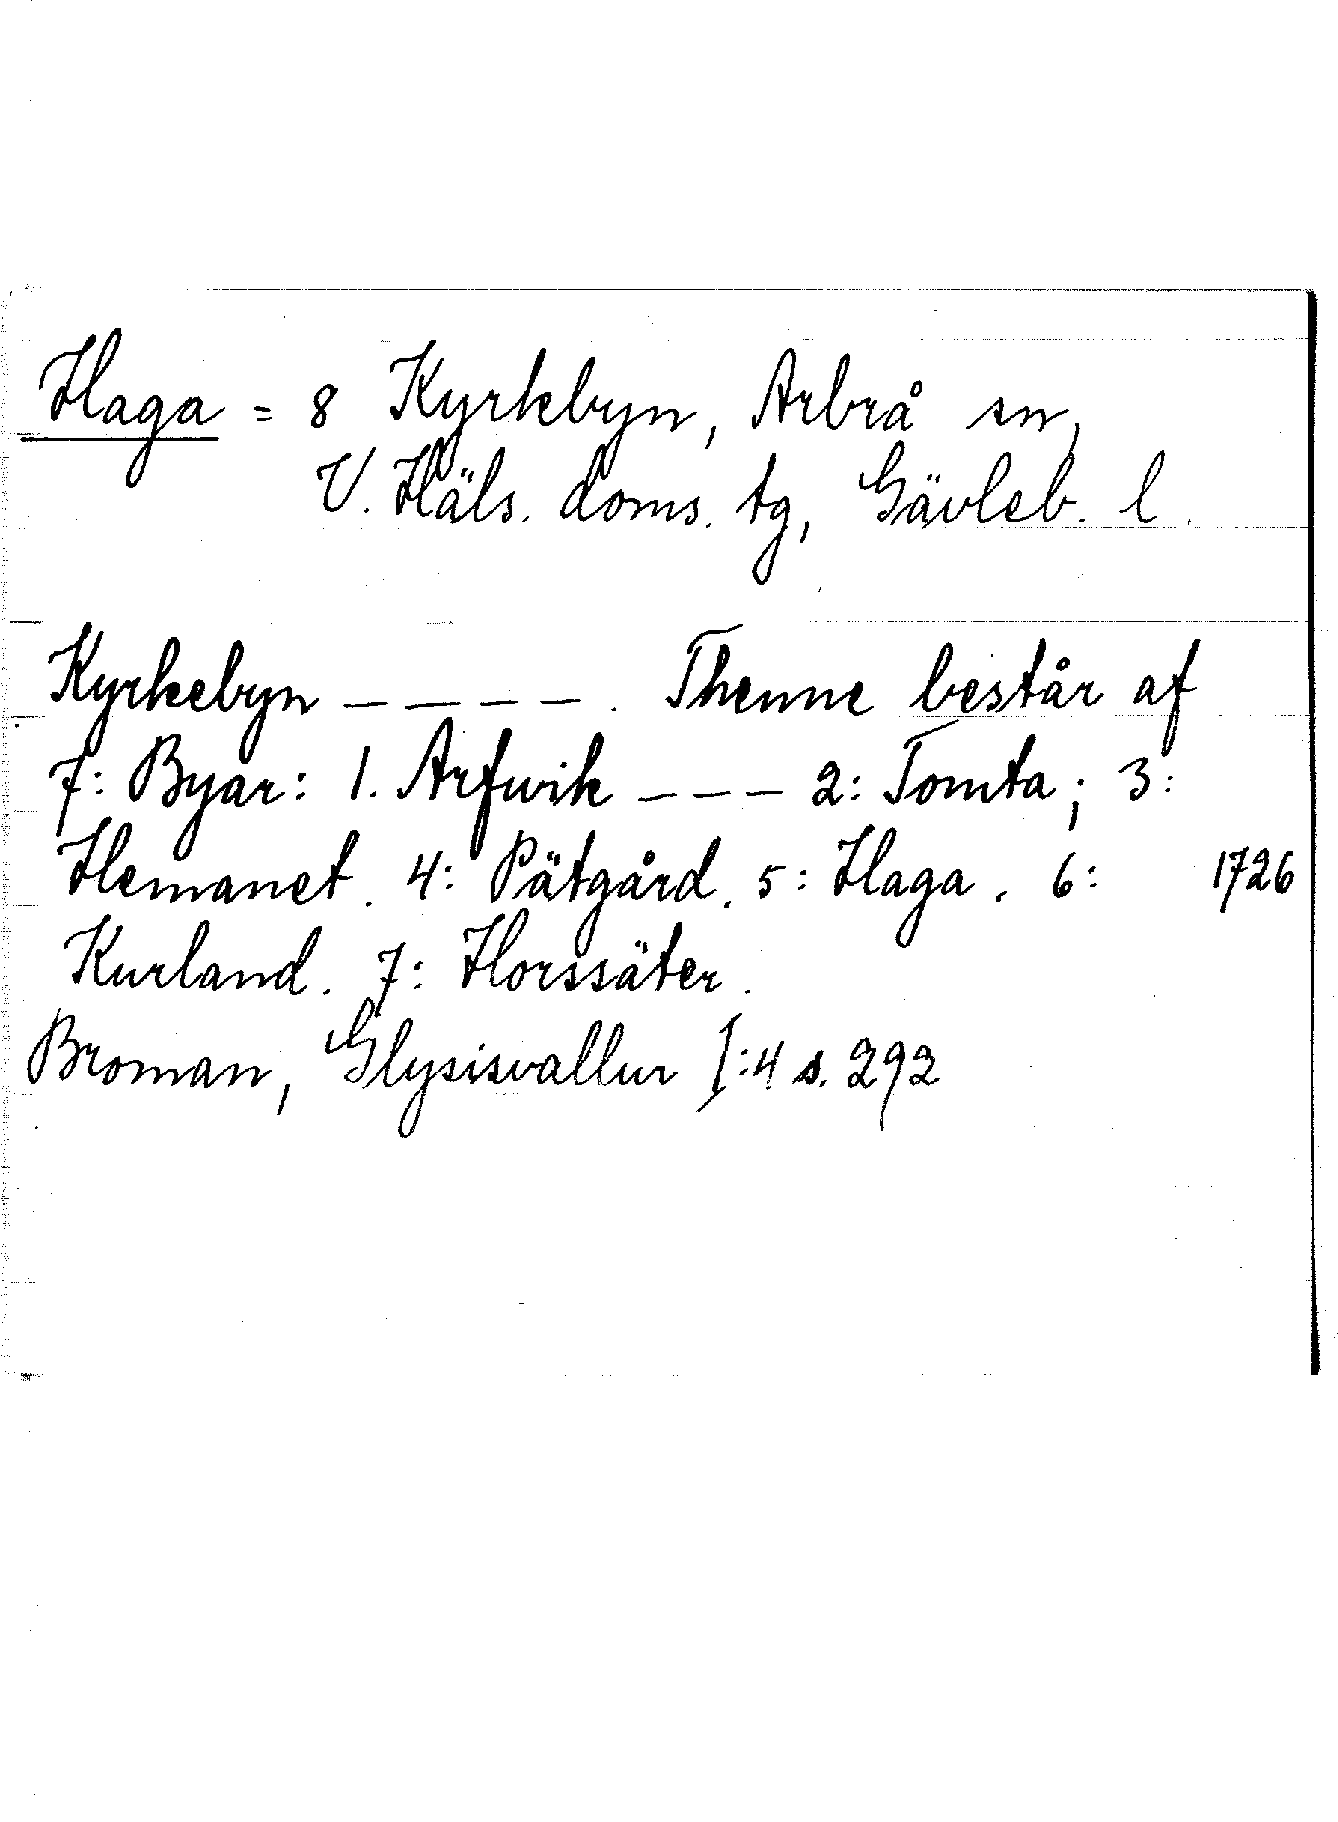 Haga = 8 Kyrkebyn, Arbrå sn,
V. Häls. doms. tg, Gävleb. l.
Kyrkebyn – – – – . Thenne består af
7: Byar: 1. Arfwik – – – 2: Tomta; 3:
Hemanet. 4: Pätgård. 5: Haga. 6: 1726
Kurland. 7: Horssäter.
Broman, Glysisvallur I:4 s. 292